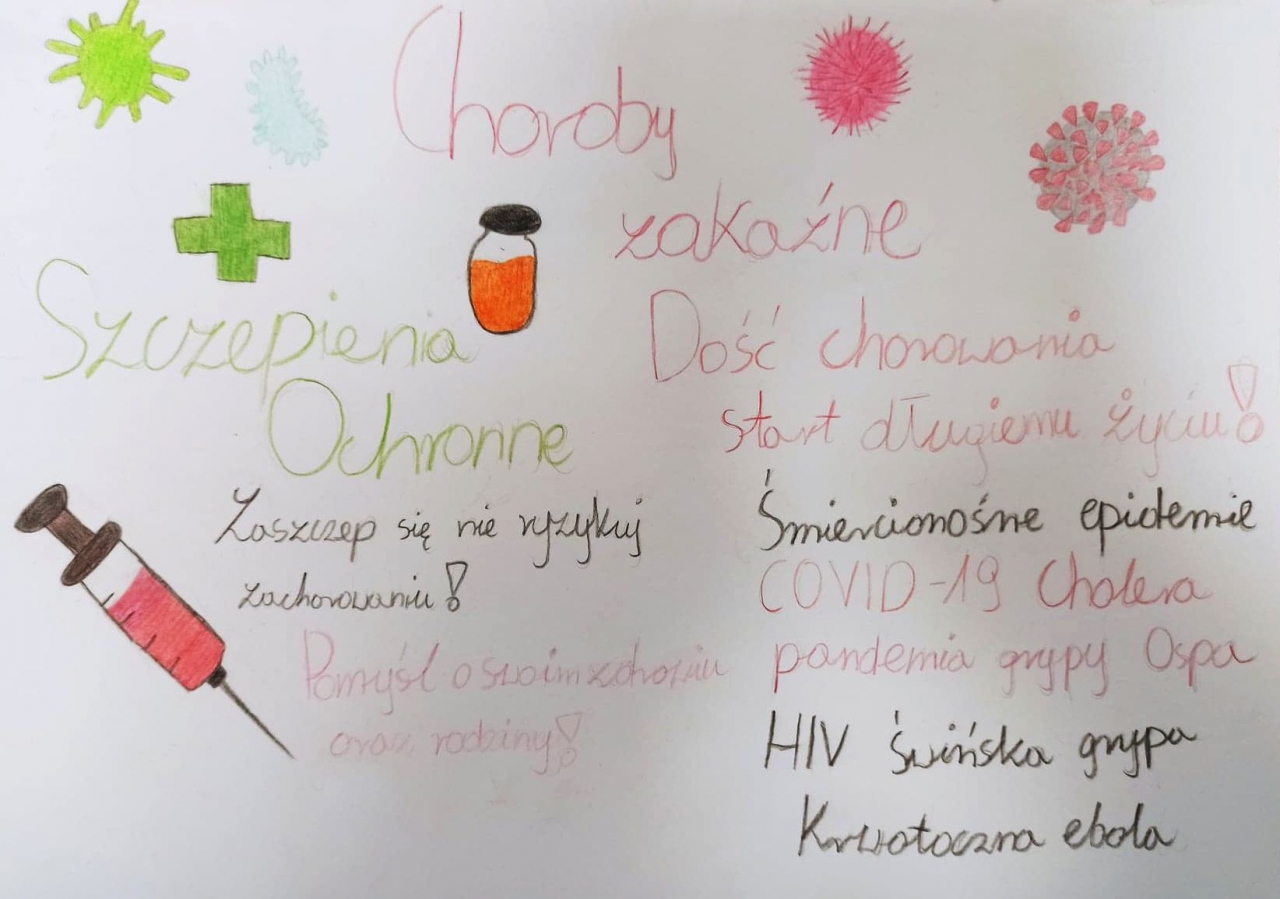 Choroby
zakaźne
Szczepienia
Ochronne
Zaszczep się nie ryzykuj
zachorowaniu!
Pomyśl o swoim zdrowiu
oraz rodziny!
Dość chorowania
start długiemu życiu!
Śmiercionośne epidemie
COVID-19 Cholera
pandemia grypy Ospa
HIV świńska grypa
Krwotoczna ebola